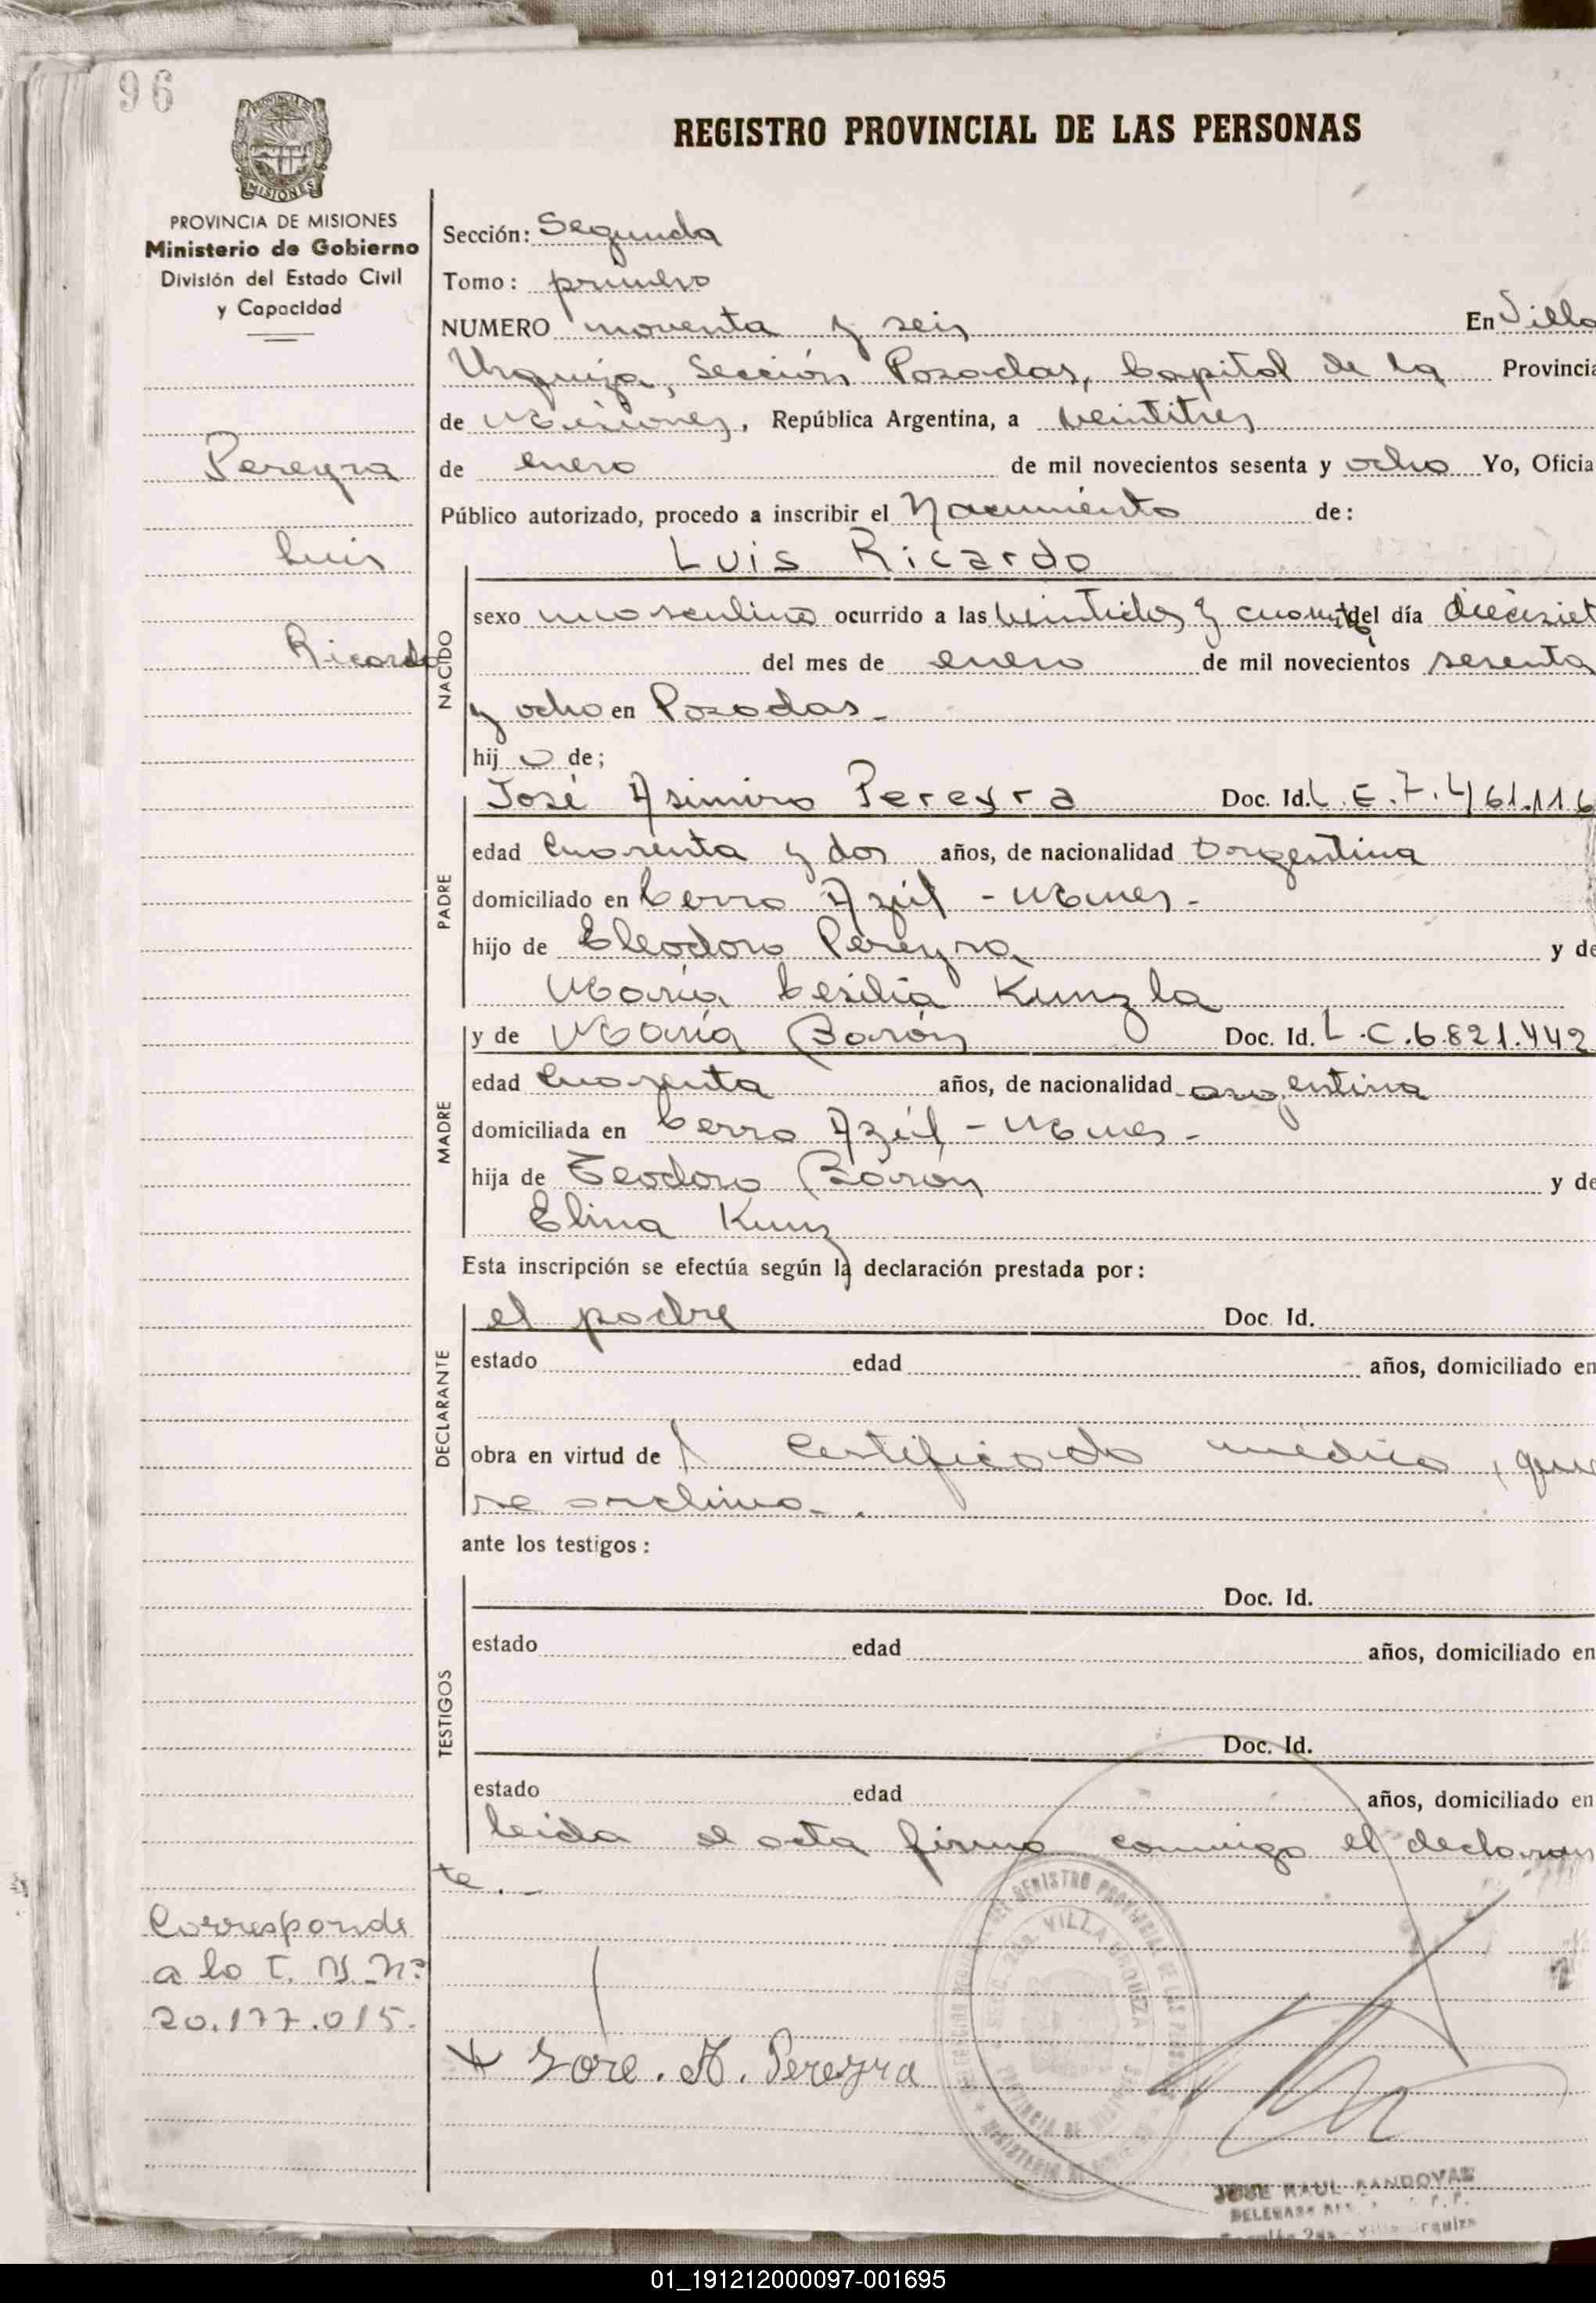 96
REGISTRO PROVINCIAL DE LAS PERSONAS
PROVINCIA DE
MISIONES
PROVINCIA DE MISIONES
Ministerio de Gobierno
División del Estado Civil
y Capacidad
Pereyra
Luis
Ricardo
Sección: Segunda
Tomo: primero
NUMERO noventa y seis En Villa
Urquiza, Sección Posadas, Capital de la Provincia
de Misiones, República Argentina, a veintitres
de enero de mil novecientos sesenta y ocho Yo, Oficia
Público autorizado, procedo a inscribir el Nacimiento de:
Luis Ricardo
NACIDO
sexo masculino ocurrido a las veintidos y cuarto del día diecisiet
del mes de enero de mil novecientos sesenta
y ocho en Posadas.-
hij o de;
José Asimiro Pereyra Doc. Id. L.E.7.461.116
PADRE
edad cuarenta y dos años, de nacionalidad argentina
domiciliado en Cerro Azúl - Mnes.-
hijo de Eleodoro Pereyra y de
María Cesilia Kunzla
y de María Barón Doc. Id. L.C.6.821.442
MADRE
edad cuarenta años, de nacionalidad argentina
domiciliada en Cerro Azúl - Mnes.-
hija de Teodoro Barón y de
Elina Kunz
Esta inscripción se efectúa según la declaración prestada por:
el padre Doc. Id.
DECLARANTE
estado edad años, domiciliado en
obra en virtud de Certificado médico, que
se archiva.-
ante los testigos:
Doc. Id.
TESTIGOS
estado edad años, domiciliado en
Doc. Id.
estado edad años, domiciliado en
leida el acta firma conmigo el declaran
te.-
Corresponde
a la T. N. Nº
20.177.015.
Jose. A. Pereyra
REGISTRO PROVINCIAL DE LAS
SECC. 2da. VILLA URQUIZA
PROVINCIA DE MISIONES
MINISTERIO DE
JOSE RAUL SANDOVAL
DELEGADO
Sección 2da - Villa Urquiza
01_191212000097-001695